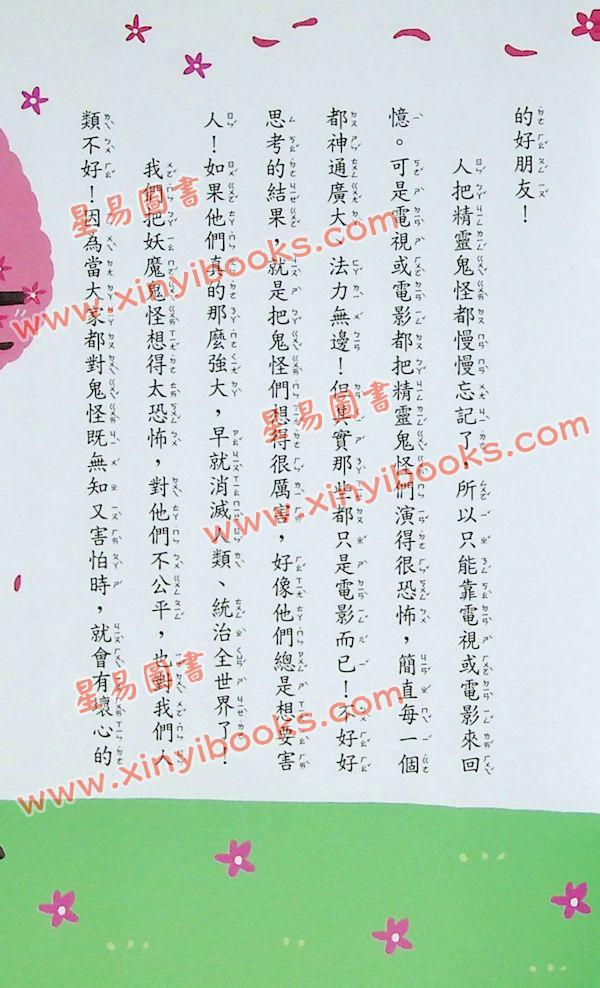 的好朋友！
人把精靈鬼怪都慢慢忘記了，所以只能靠電視或電影來回
憶。可是電視或電影都把精靈鬼怪們演得很恐怖，簡直每一個
都神通廣大、法力無邊！但其實那些都只是電影而已！不好好
思考的結果，就是把鬼怪們想得很厲害，好像他們總是想要害
人！如果他們真的那麼強大，早就消滅人類、統治全世界了！
我們把妖魔鬼怪想得太恐怖，對他們不公平，也對我們人
類不好！因為當大家都對鬼怪既無知又害怕時，就會有壞心的
星易圖書
www.xinyibooks.com
星易圖書
www.xinyibooks.com
星易圖書
www.xinyibooks.com